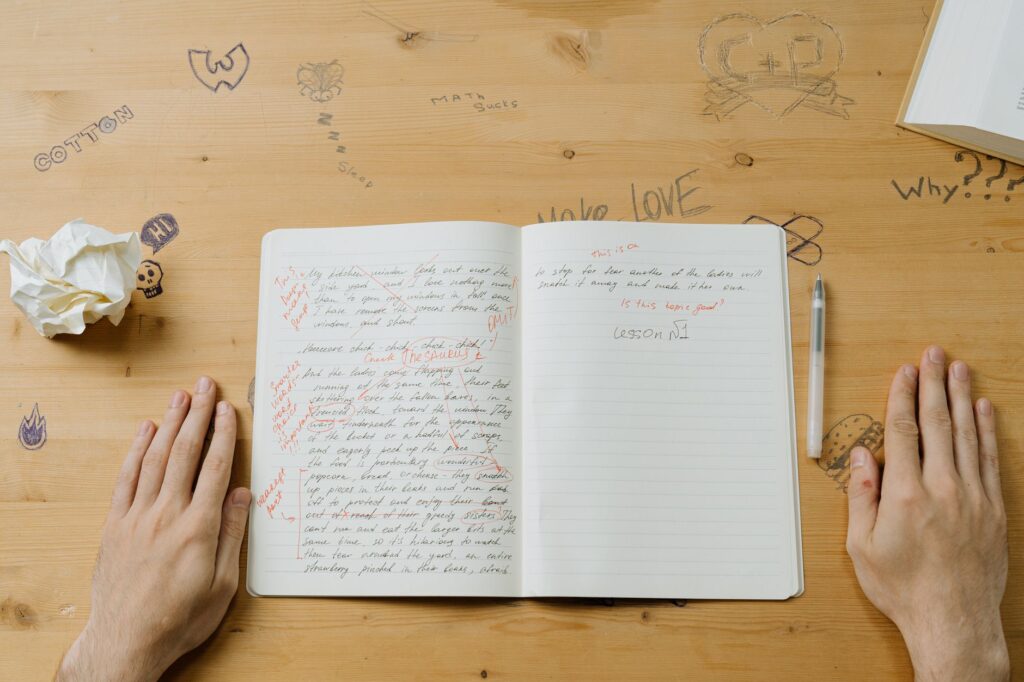 W
COTTON
MATH
Sucks
C+P
ZZZ
Sleep
Why???
MAKE LOVE
HI
My kitchen window looks out over the
side yard and I love nothing more
than to open my windows in fall, once
I have remove the screens from the
windows, and shout.
OMIT!
chick-chick-chick-chick!
Check THESAURUS
And the ladies come flapping and
running at the same time, their feet
over the fallen leaves, in a
flock toward the window. They
wait underneath for the appearance
of the bucket or a handful of scraps
and eagerly peck up the piece. If
the food is particulary wonderful
popcorn, bread, or cheese - they snatch
up pieces in their beaks and run
off to protect and enjoy their
out of reach of their greedy sisters. They
can't run and eat the larger bits at the
same time, so it's hilarious to watch
them tear around the yard, an entire
strawberry pinched in their beaks, afraid
weakest
part
this is a
to stop for fear another of the ladies will
snatch it away and make it her own.
Is this topic good?
Lesson №1